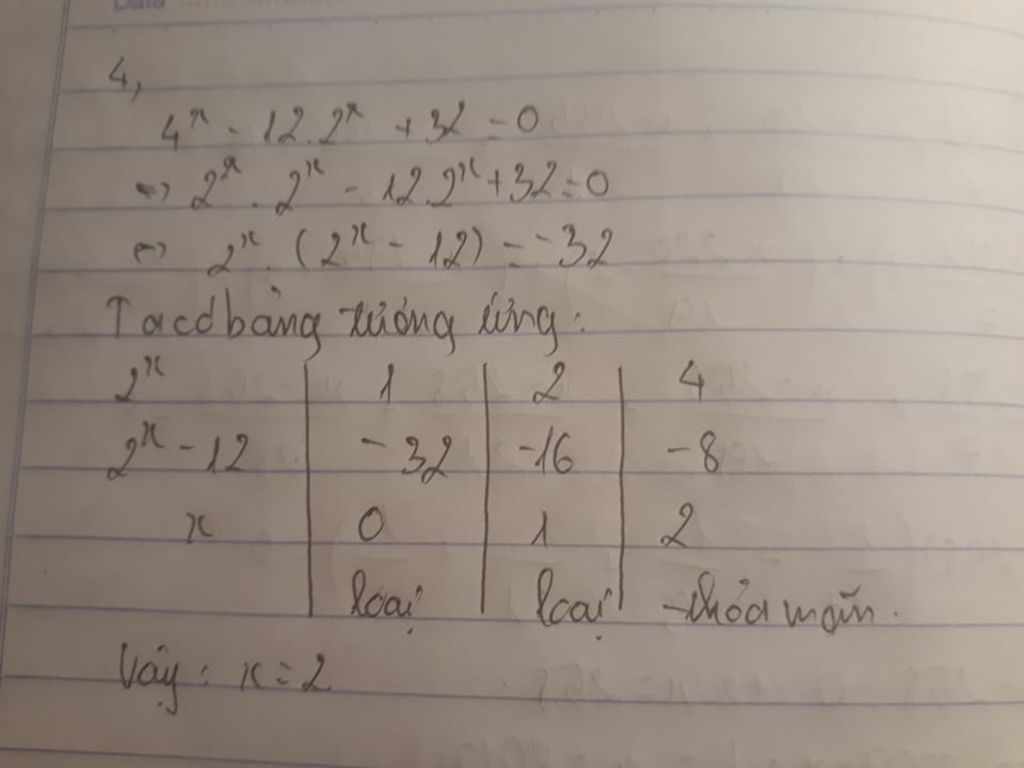 Date
4,
4ˣ - 12.2ˣ + 32 = 0
⇔ 2ˣ . 2ˣ - 12.2ˣ + 32 = 0
⇔ 2ˣ . (2ˣ - 12) = -32
Ta có bảng tương ứng:
2ˣ | 1 | 2 | 4
2ˣ - 12 | -32 | -16 | -8
x | 0 | 1 | 2
loại | loại | thỏa mãn.
Vậy: x = 2